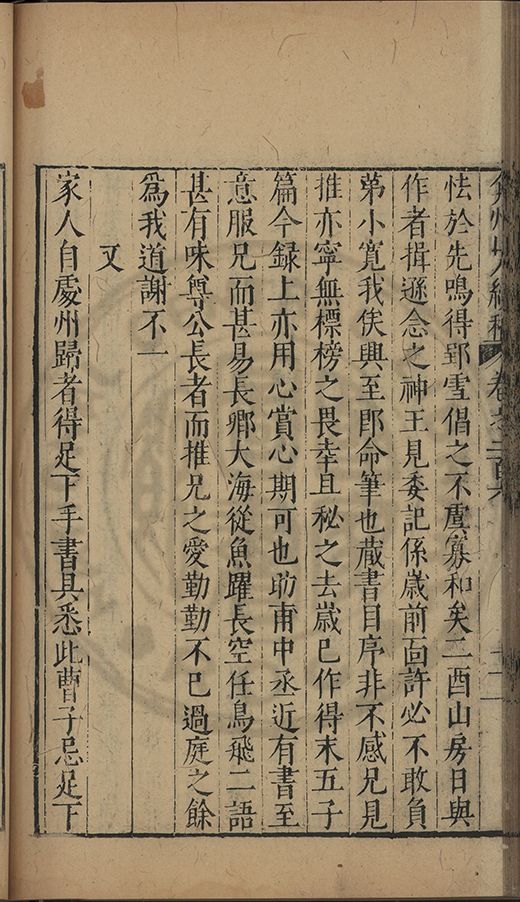 弇州山人續稿 卷之二百六
怯於先鳴得郢雪倡之不虞寡和矣二酉山房日與
作者揖遜念之神王見委記係歲前面許必不敢負
弟小寬我俟興至卽命筆也藏書目序非不感兄見
推亦寧無標榜之畏幸且秘之去歲已作得末五子
篇今録上亦用心賞心期可也助甫中丞近有書至
意服兄而甚易長卿大海從魚躍長空任鳥飛二語
甚有味尊公長者而推兄之愛勤勤不已過庭之餘
爲我道謝不一
又
家人自處州歸者得足下手書具悉此曹子忌足下